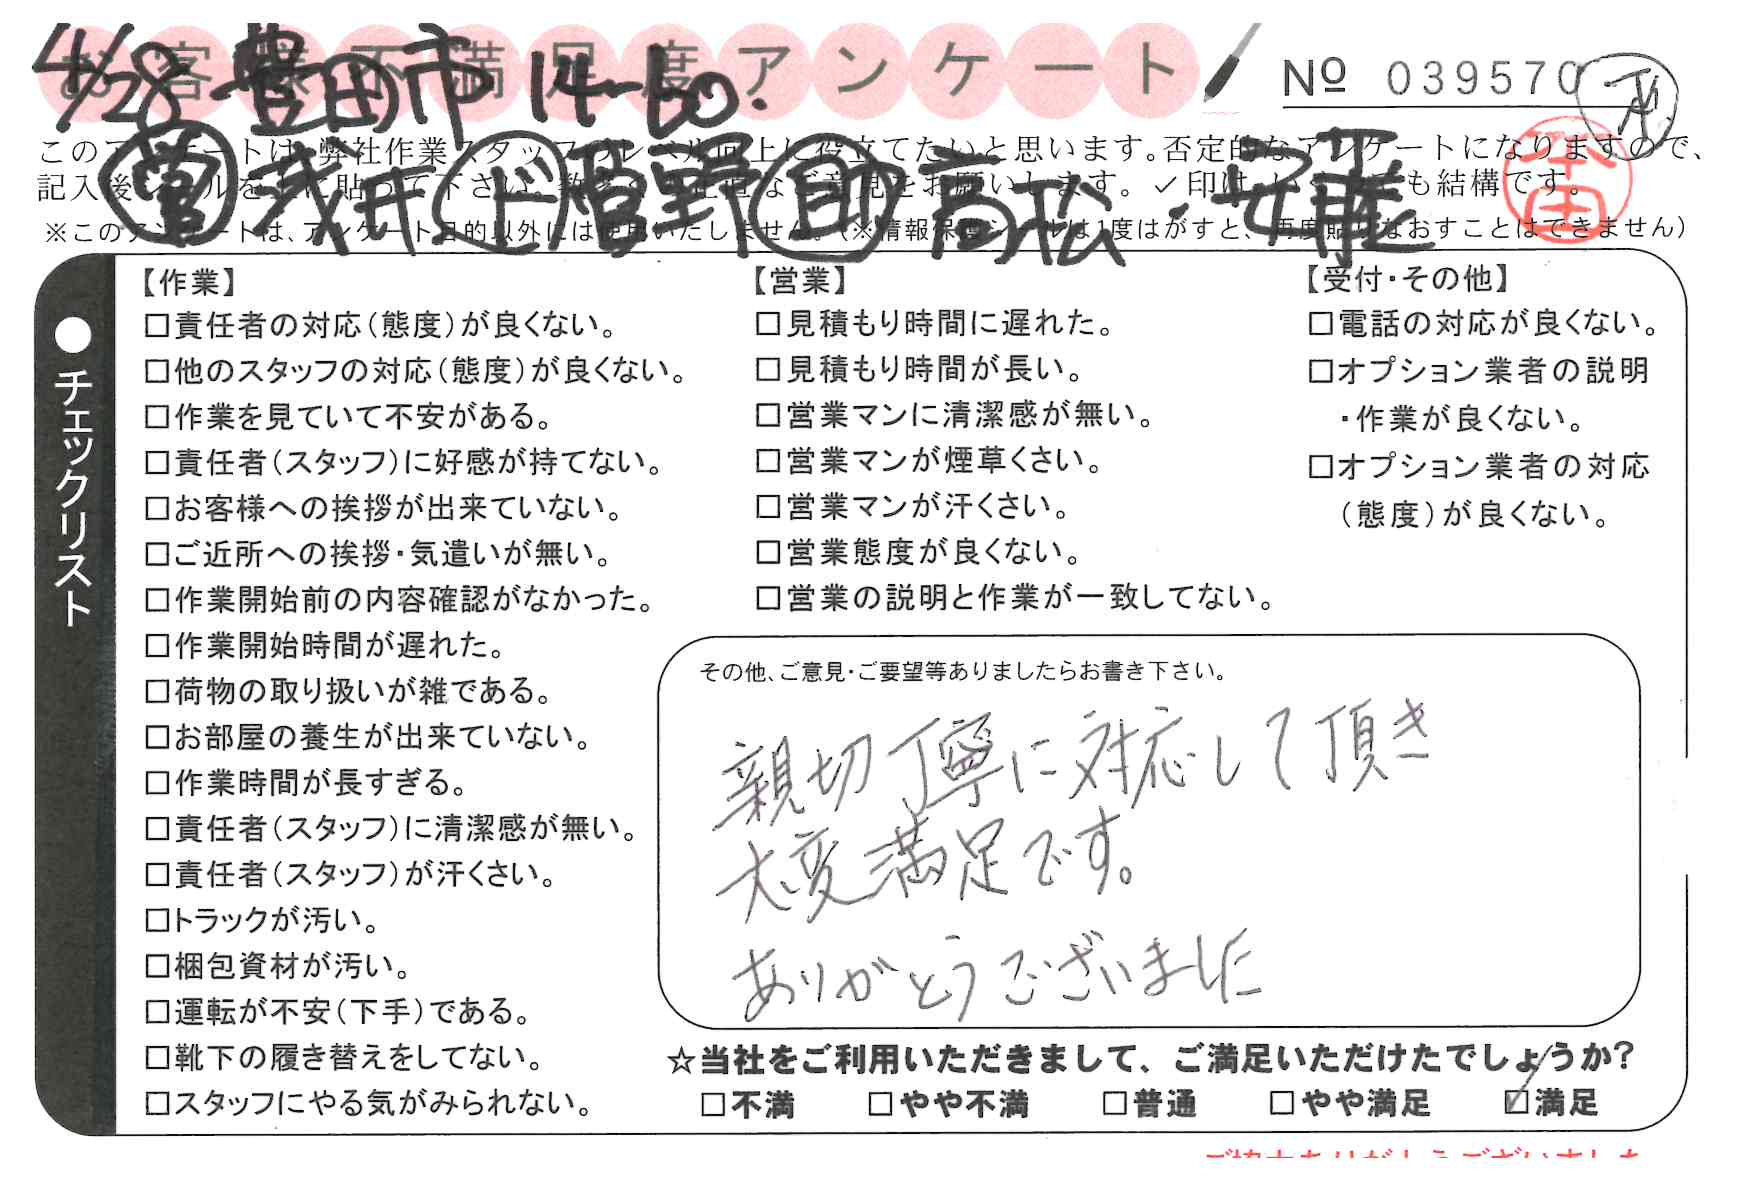 お客様不満足度アンケート
№ 039570
4/28 豊田市 14-60.
営 浅井 ド 菅野 助 高松・安離
このアンケートは、弊社作業スタッフのレベル向上に役立てたいと思います。否定的なアンケートになりますので、
記入後シールを上に貼って下さい。数多くの正直なご意見をお願いします。✓印はいくつでも結構です。
※このアンケートは、アンケート目的以外には使用いたしません。(※情報保護シールは1度はがすと、再度貼りなおすことはできません)
●チェックリスト
【作業】
□責任者の対応(態度)が良くない。
□他のスタッフの対応(態度)が良くない。
□作業を見ていて不安がある。
□責任者(スタッフ)に好感が持てない。
□お客様への挨拶が出来ていない。
□ご近所への挨拶・気遣いが無い。
□作業開始前の内容確認がなかった。
□作業開始時間が遅れた。
□荷物の取り扱いが雑である。
□お部屋の養生が出来ていない。
□作業時間が長すぎる。
□責任者(スタッフ)に清潔感が無い。
□責任者(スタッフ)が汗くさい。
□トラックが汚い。
□梱包資材が汚い。
□運転が不安(下手)である。
□靴下の履き替えをしてない。
□スタッフにやる気がみられない。
【営業】
□見積もり時間に遅れた。
□見積もり時間が長い。
□営業マンに清潔感が無い。
□営業マンが煙草くさい。
□営業マンが汗くさい。
□営業態度が良くない。
□営業の説明と作業が一致してない。
【受付・その他】
□電話の対応が良くない。
□オプション業者の説明
・作業が良くない。
□オプション業者の対応
(態度)が良くない。
その他、ご意見・ご要望等ありましたらお書き下さい。
親切丁寧に対応して頂き
大変満足です。
ありがとうございました
☆当社をご利用いただきまして、ご満足いただけたでしょうか?
□不満 □やや不満 □普通 □やや満足 ☑満足
ご協力ありがとうございました